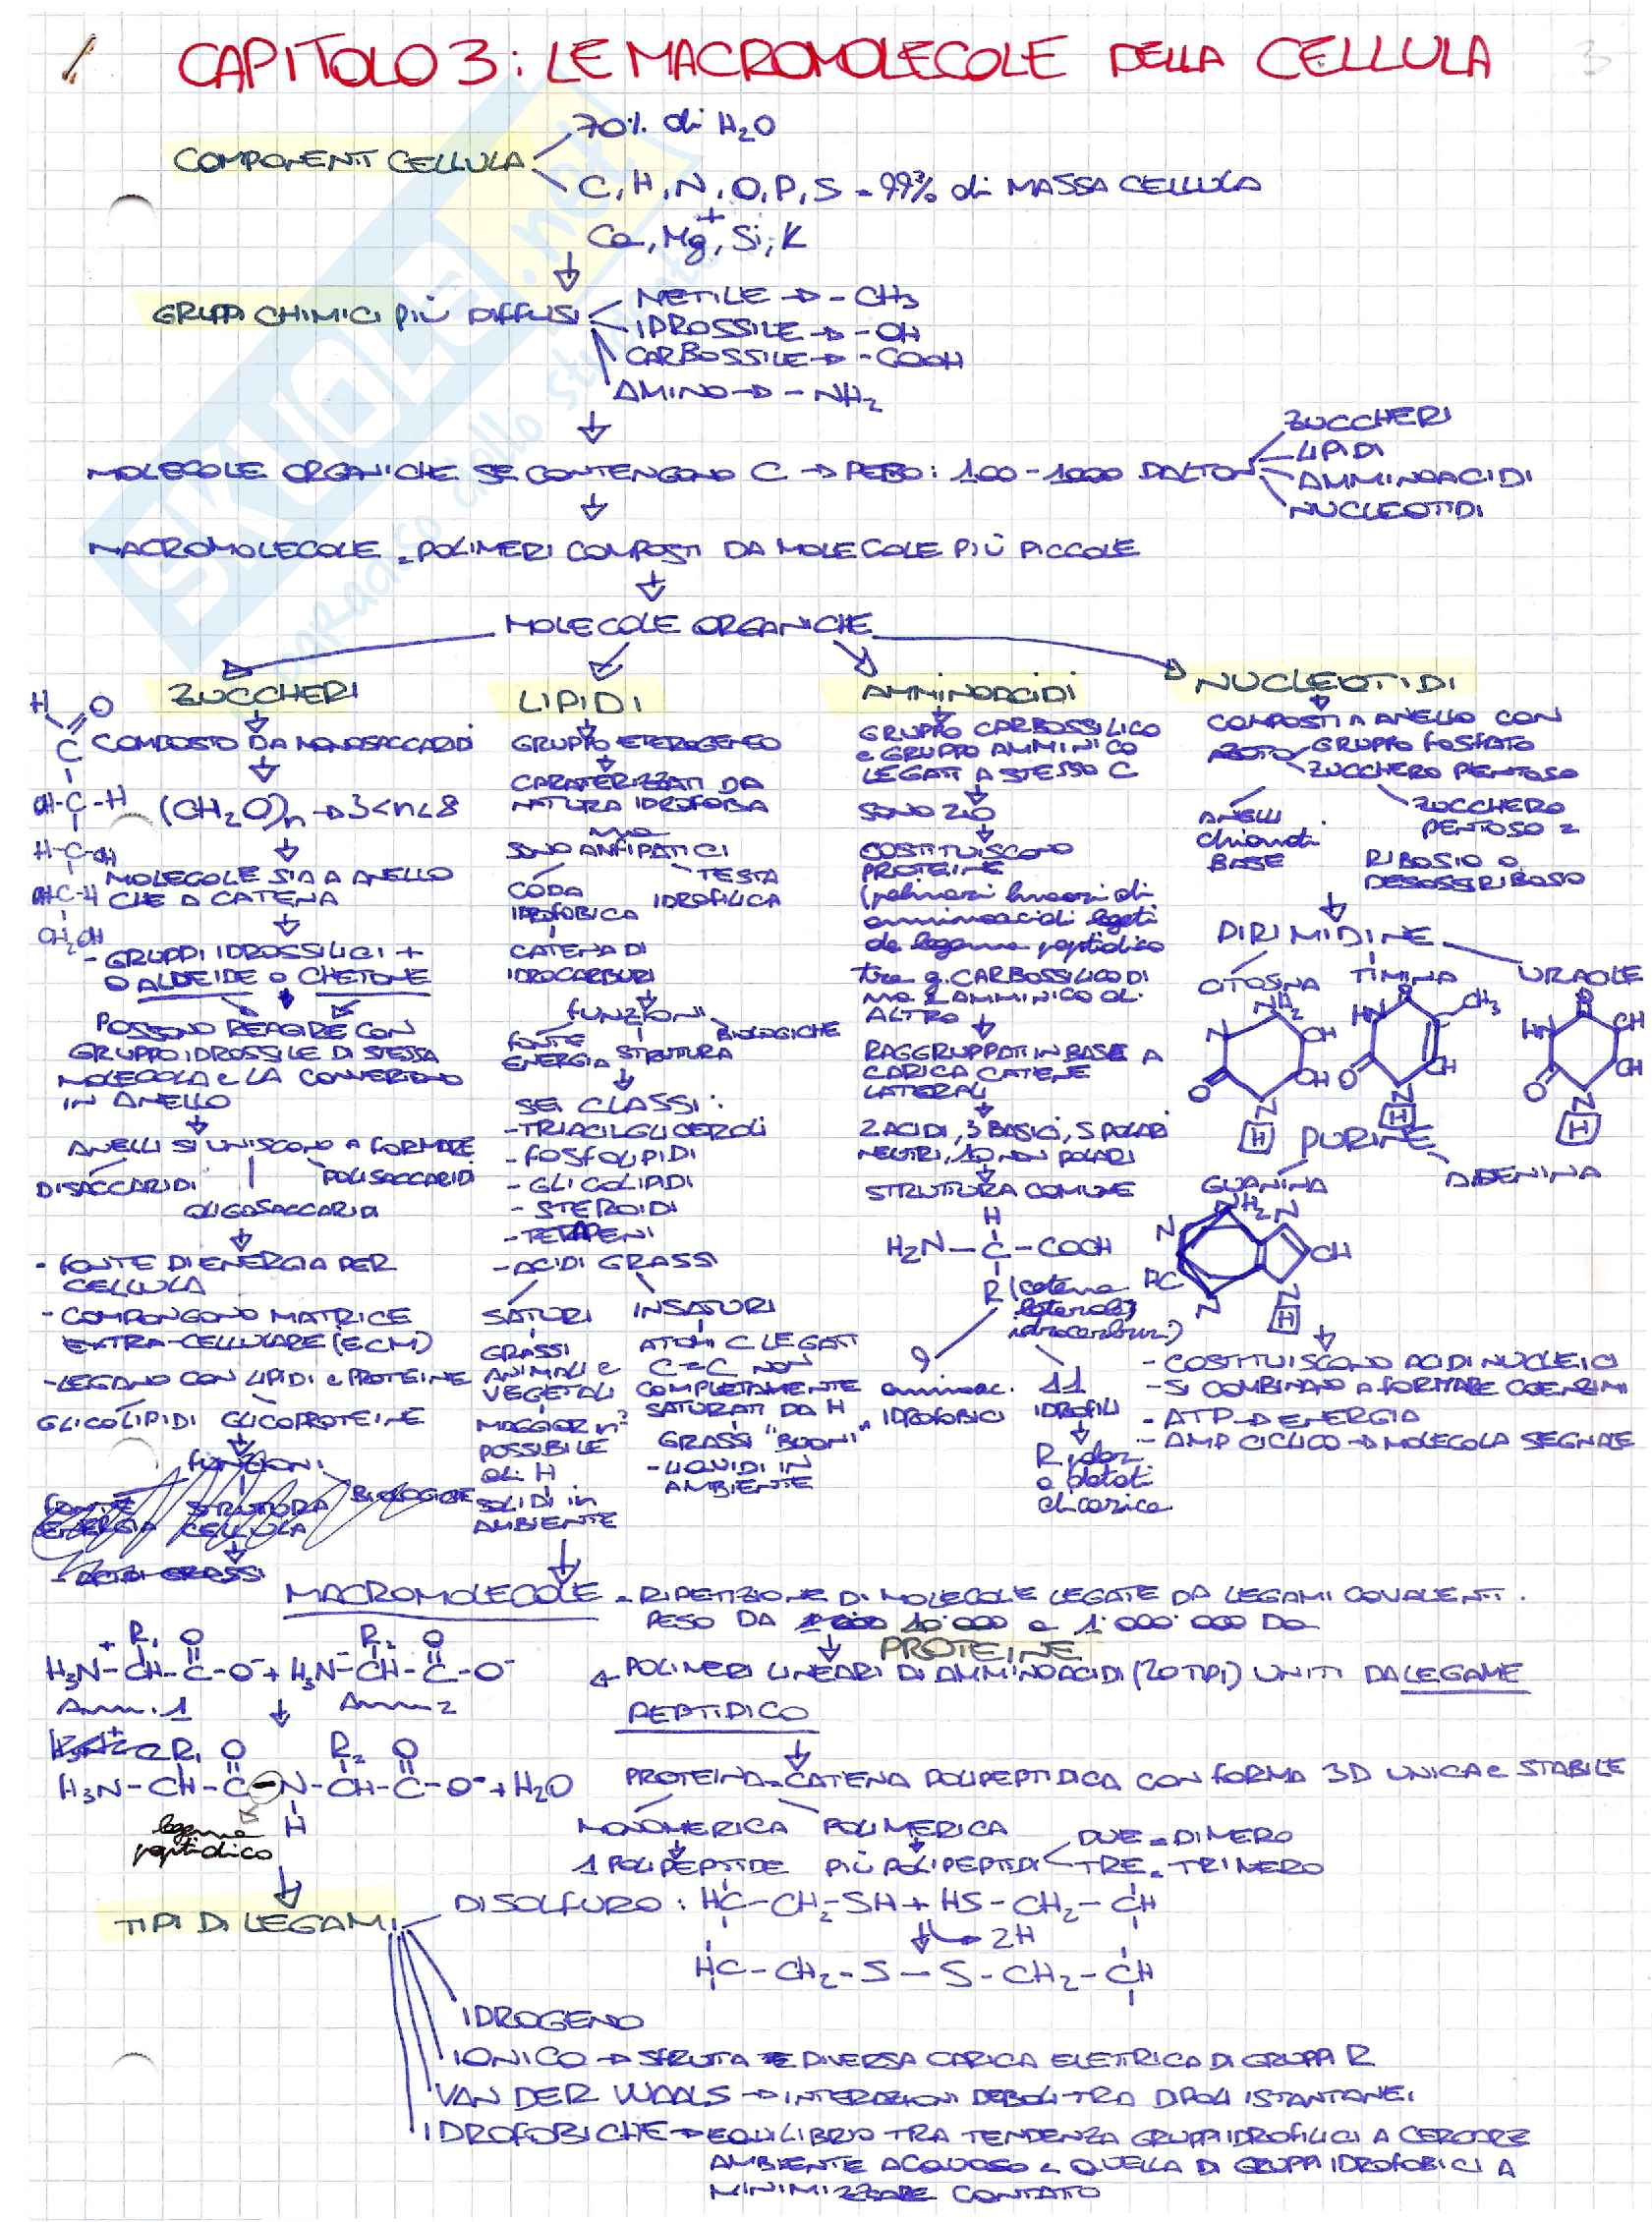 CAPITOLO 3: LE MACROMOLECOLE DELLA CELLULA
3
COMPONENTI CELLULA
70% di H₂O
C, H, N, O, P, S = 99% di MASSA CELLULA
+
Ca, Mg, Si, K
GRUPPI CHIMICI PIÙ DIFFUSI
METILE → -CH₃
IDROSSILE → -OH
CARBOSSILE → -COOH
AMINO → -NH₂
MOLECOLE ORGANICHE SE CONTENGONO C → PESO: 100-1000 DALTON
ZUCCHERI
LIPIDI
AMMINOACIDI
NUCLEOTIDI
MACROMOLECOLE = POLIMERI COMPOSTI DA MOLECOLE PIÙ PICCOLE
MOLECOLE ORGANICHE
ZUCCHERI
COMPOSTO DA MONOSACCARIDI
(CH₂O)n → 3<n<8
MOLECOLE SIA A ANELLO
CHE A CATENA
- GRUPPI IDROSSILICI +
O ALDEIDE O CHETONE
POSSONO REAGIRE CON
GRUPPO IDROSSILE DI STESSA
MOLECOLA e LA CONVERTONO
IN ANELLO
ANELLI SI UNISCONO A FORMARE
DISACCARIDI
POLISACCARIDI
OLIGOSACCARIDI
- FONTE DI ENERGIA PER
CELLULA
- COMPONGONO MATRICE
EXTRA-CELLULARE (ECM)
- LEGANO CON LIPIDI e PROTEINE
GLICOLIPIDI GLICOPROTEINE
FUNZIONI
FONTE
ENERGIA
STRUTTURA
CELLULA
BIOLOGICHE
- ACIDI GRASSI
H O
C
OH-C-H
H-C-OH
OH-C-H
CH₂OH
LIPIDI
GRUPPO ETEROGENEO
CARATERIZZATI DA
NATURA IDROFOBIA
ma
SONO ANFIPATICI
CODA
IDROFOBICA
TESTA
IDROFILICA
CATENA DI
IDROCARBURI
FUNZIONI
FONTE
ENERGIA
STRUTTURA
BIOLOGICHE
SEI CLASSI:
- TRIACILGLICEROLI
- FOSFOLIPIDI
- GLICOLIPIDI
- STEROIDI
- TERPENI
- ACIDI GRASSI
SATURI
GRASSI
ANIMALI e
VEGETALI
MAGGIOR n°
POSSIBILE
di H
SOLIDI in
AMBIENTE
INSATURI
ATOMI C LEGATI
C=C NON
COMPLETAMENTE
SATURATI DA H
GRASSI "BUONI"
- LIQUIDI IN
AMBIENTE
AMMINOACIDI
GRUPPO CARBOSSILICO
e GRUPPO AMMINICO
LEGATI A STESSO C
SONO 20
COSTITUISCONO
PROTEINE
(polimeri lineari di
aminoacidi legati
da legame peptidico
tra g. CARBOSSILICO DI
uno e AMMINICO di
ALTRO
RAGGRUPPATI IN BASE A
CARICA CATENE
LATERALI
2 ACIDI, 3 BASICI, 5 POLARI
NEUTRI, 10 NON POLARI
STRUTTURA COMUNE
H
H₂N-C-COOH
R (catena
laterale
idrocarburi)
9
aminoac.
IDROFOBICI
11
IDROFILI
R, idor
o dotati
di carica
NUCLEOTIDI
COMPOSTI A ANELLO CON
AZOTO
GRUPPO FOSFATO
ZUCCHERO PENTOSO
ANELLI
chiamati
BASE
ZUCCHERO
PENTOSO =
RIBOSIO O
DESOSSIRIBOSIO
PIRIMIDINE
CITOSINA TIMINA URACILE
NH₂
N CH
O CH
N
H
O
HN CH₃
O CH
N
H
O
HN CH
O CH
N
H
PURINE
GUANINA
ADENINA
NH₂
N N
CH
HC
N N
H
- COSTITUISCONO ACIDI NUCLEICI
- SI COMBINANO A FORMARE COENZIMI
- ATP → ENERGIA
- AMP CICLICO → MOLECOLA SEGNALE
MACROMOLECOLE = RIPETIZIONE DI MOLECOLE LEGATE DA LEGAMI COVALENTI.
PESO DA 10'000 a 1'000'000 Da
PROTEINE
POLIMERI LINEARI DI AMMINOACIDI (20 TIPI) UNITI DA LEGAME
PEPTIDICO
+ R₁ O R₂ O
H₃N-CH-C-O⁻ + H₃N-CH-C-O⁻
Amm.1 Amm 2
R₁ O R₂ O
H₃N-CH-C-N-CH-C-O⁻ + H₂O
H
legame
peptidico
PROTEINA = CATENA POLIPEPTIDICA CON FORMA 3D UNICA e STABILE
MONOMERICA POLIMERICA
1 POLIPEPTIDE PIÙ POLIPEPTIDI
DUE = DIMERO
TRE = TRIMERO
TIPI DI LEGAMI
DISOLFURO: HC-CH₂-SH + HS-CH₂-CH
2H
HC-CH₂-S-S-CH₂-CH
IDROGENO
IONICO → SFRUTTA DIVERSA CARICA ELETTRICA DI GRUPPI R
VAN DER WAALS → INTERAZIONI DEBOLI TRA DIPOLI ISTANTANEI
IDROFOBICHE → EQUILIBRIO TRA TENDENZA GRUPPI IDROFILICI A CERCARE
AMBIENTE ACQUOSO e QUELLA DI GRUPPI IDROFOBICI A
MINIMIZZARE CONTATTO
SKUOLA.net